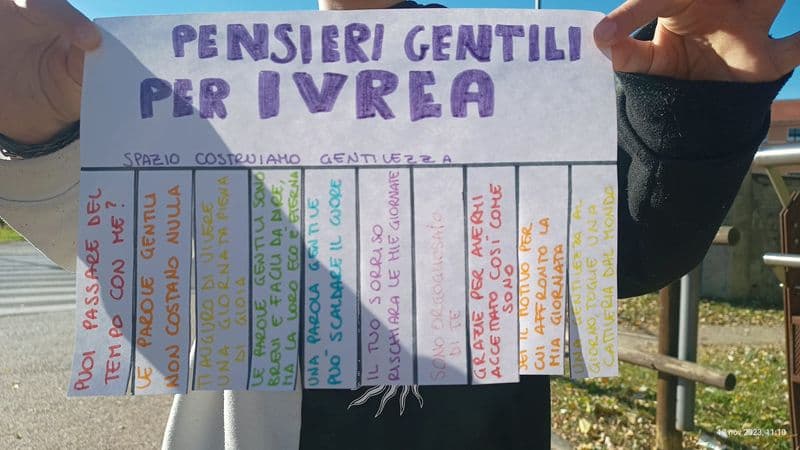 PENSIERI GENTILI
PER IVREA
SPAZIO COSTRUIAMO GENTILEZZA
PUOI PASSARE DEL
TEMPO CON ME?
LE PAROLE GENTILI
NON COSTANO NULLA
TI AUGURO DI VIVERE
UNA GIORNATA PIENA
DI GIOIA
LE PAROLE GENTILI SONO
BREVI E FACILI DA DIRE,
MA LA LORO ECO È ETERNA
UNA PAROLA GENTILE
PUÒ SCALDARE IL CUORE
IL TUO SORRISO
RISCHIARA LE MIE GIORNATE
SONO ORGOGLIOSA/O
DI TE
GRAZIE PER AVERMI
ACCETTATO COSÌ COME
SONO
SEI IL MOTIVO PER
CUI AFFRONTO LA
MIA GIORNATA
UNA GENTILEZZA AL
GIORNO TOGLIE UNA
CATTIVERIA DAL MONDO
nov 2023, 11:10